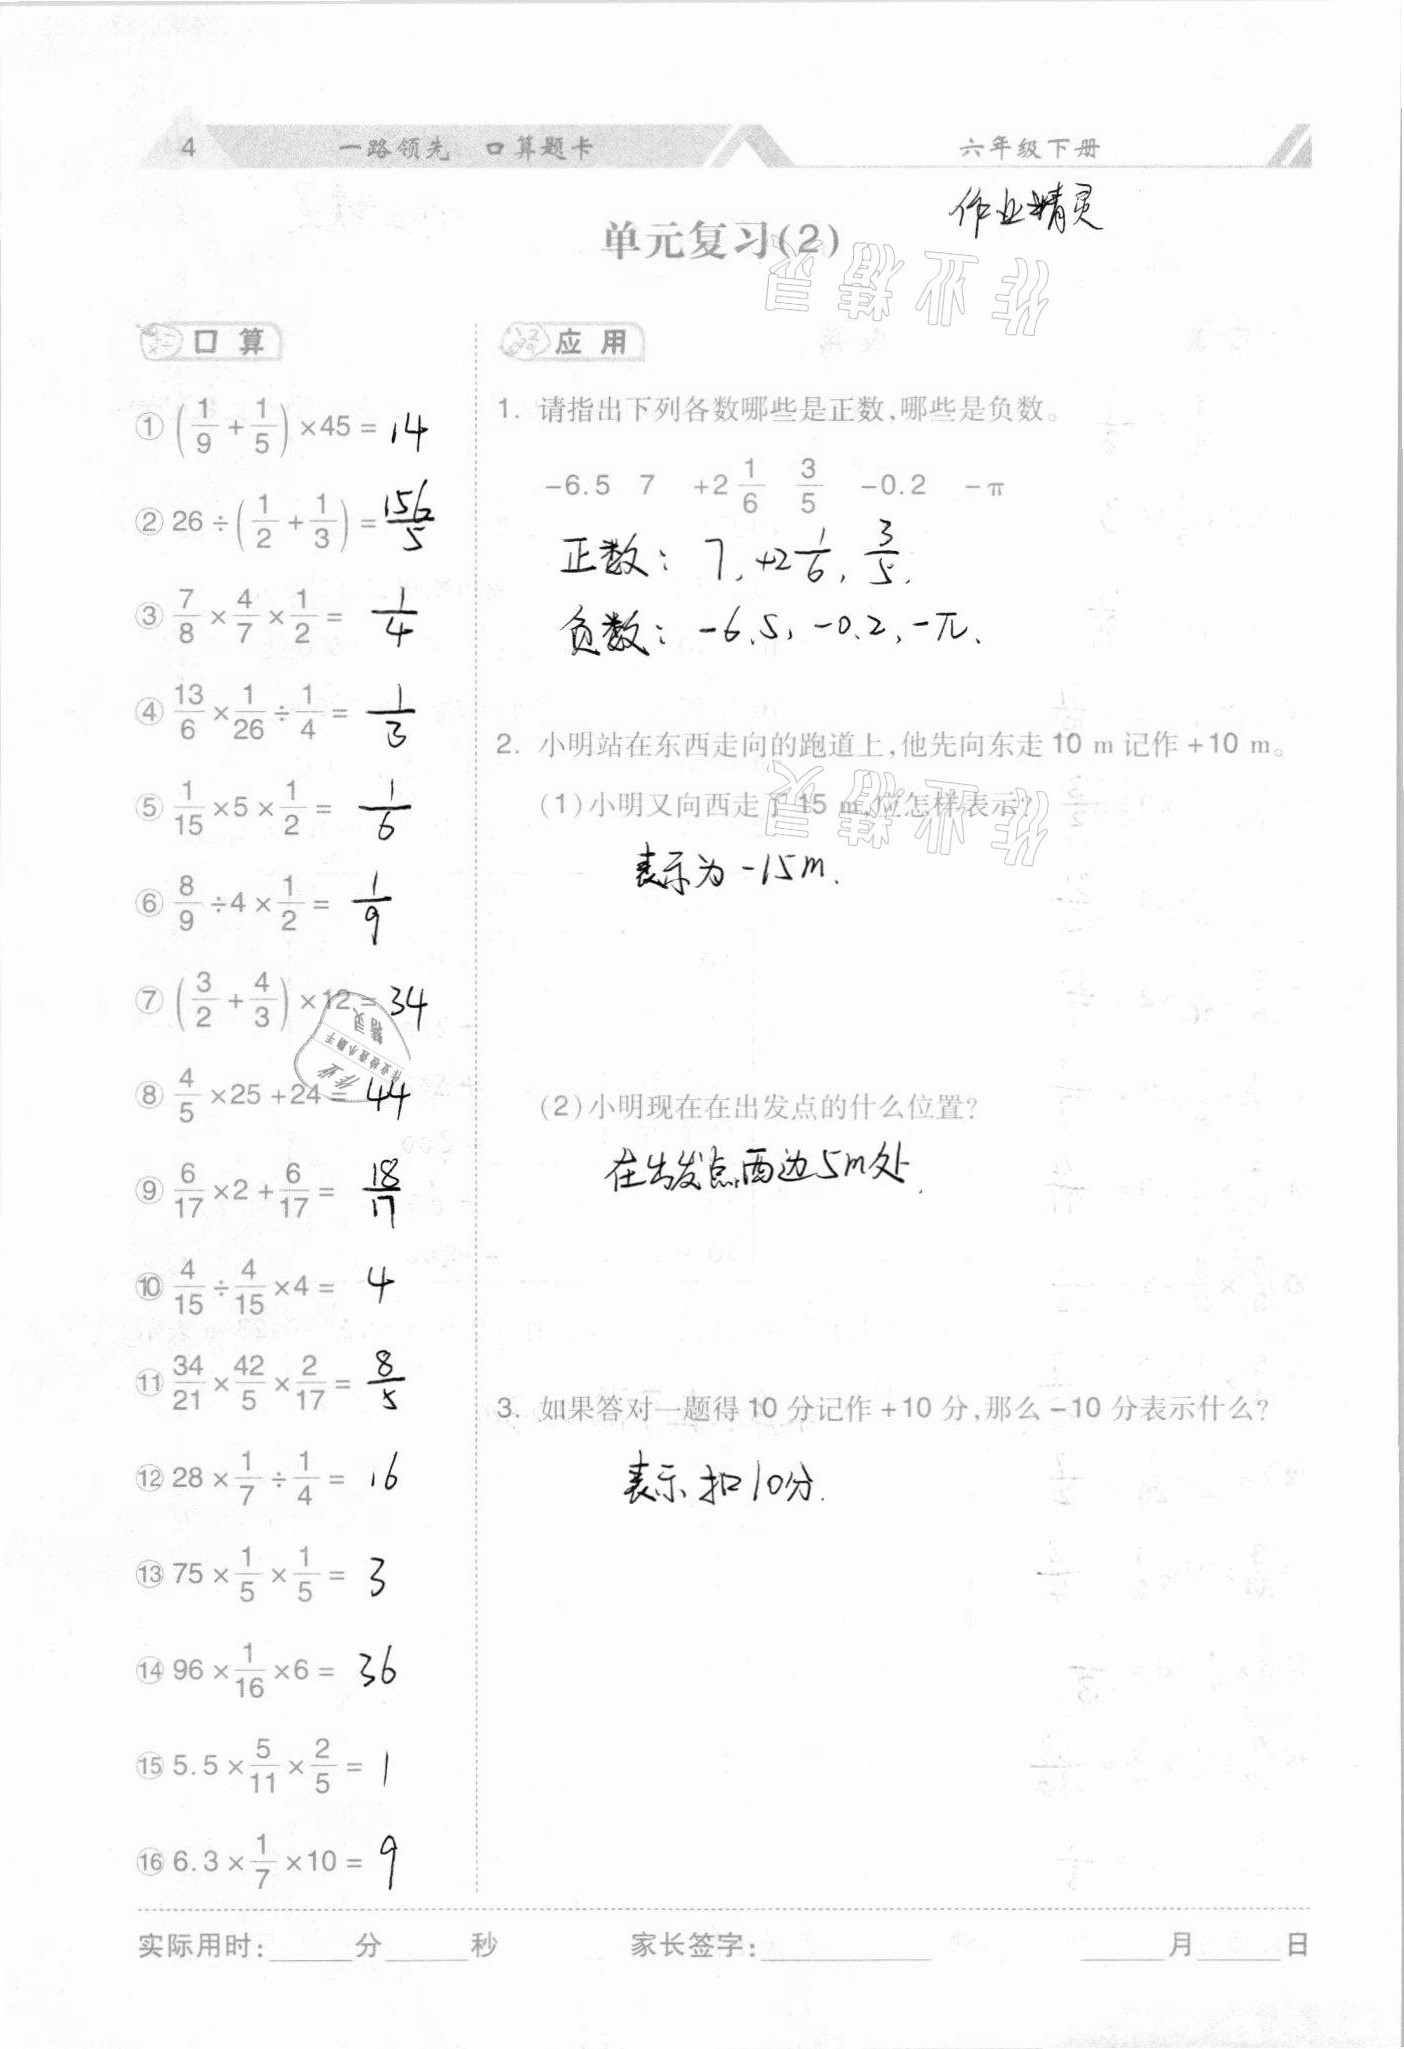 4 一路领先 口算题卡 六年级下册
作业精灵
单元复习(2)
作业精灵
口算
① (1/9 + 1/5) ×45 = 14
② 26 ÷ (1/2 + 1/3) = 156/5
③ 7/8 × 4/7 × 1/2 = 1/4
④ 13/6 × 1/26 ÷ 1/4 = 1/3
⑤ 1/15 ×5 × 1/2 = 1/6
⑥ 8/9 ÷4 × 1/2 = 1/9
⑦ (3/2 + 4/3) ×12 = 34
⑧ 4/5 ×25 +24 = 44
⑨ 6/17 ×2 + 6/17 = 18/17
⑩ 4/15 ÷ 4/15 ×4 = 4
⑪ 34/21 × 42/5 × 2/17 = 8/5
⑫ 28 × 1/7 ÷ 1/4 = 16
⑬ 75 × 1/5 × 1/5 = 3
⑭ 96 × 1/16 ×6 = 36
⑮ 5.5 × 5/11 × 2/5 = 1
⑯ 6.3 × 1/7 ×10 = 9
作业
作业检查小助手
精灵
应用
1. 请指出下列各数哪些是正数,哪些是负数。
-6.5 7 +2 1/6 3/5 -0.2 -π
正数: 7, +2 1/6, 3/5.
负数: -6.5, -0.2, -π.
2. 小明站在东西走向的跑道上,他先向东走10 m记作+10 m。
(1)小明又向西走了15 m,应怎样表示?
作业精灵
表示为-15m.
(2)小明现在在出发点的什么位置?
在出发点西边5m处.
3. 如果答对一题得10分记作+10分,那么-10分表示什么?
表示扣10分.
实际用时:______分______秒 家长签字:____________ ______月______日